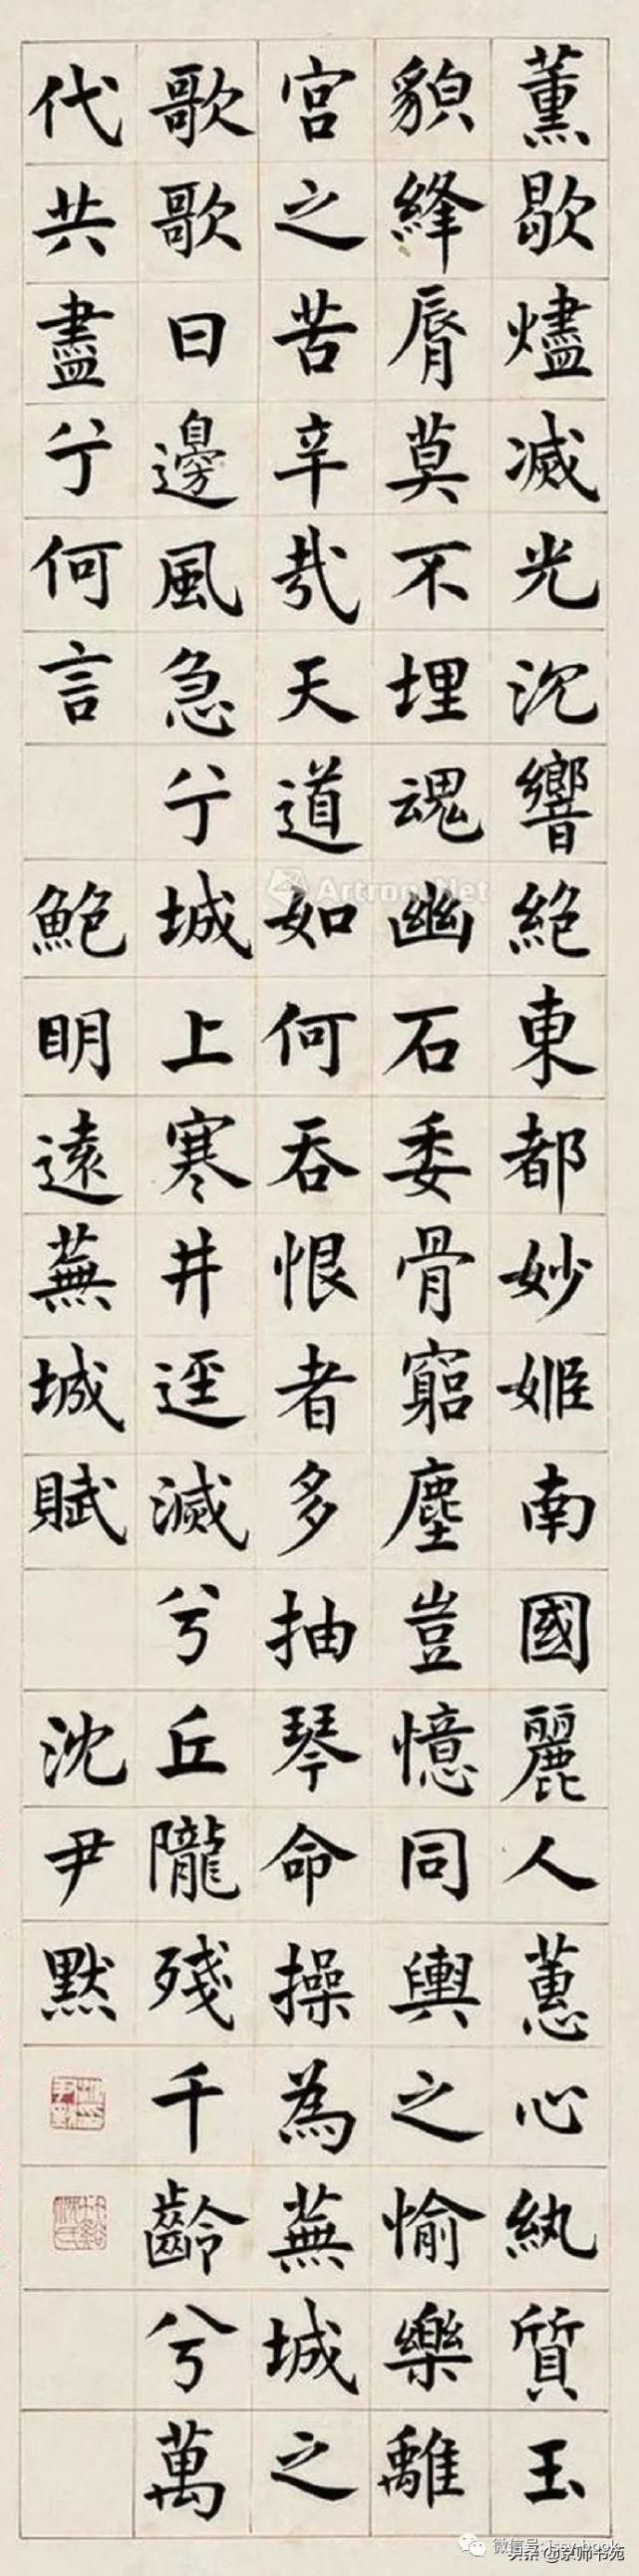 薰歇燼滅光沉響絕東都妙姬南國麗人蕙心紈質玉
貌絳脣莫不埋魂幽石委骨窮塵豈憶同輿之愉樂離
宮之苦辛哉天道如何吞恨者多抽琴命操為蕪城之
歌歌曰邊風急兮城上寒井逕滅兮丘隴殘千齡兮萬
代共盡兮何言 鮑明遠蕪城賦 沈尹默
Artron.Net
头条@京师书苑